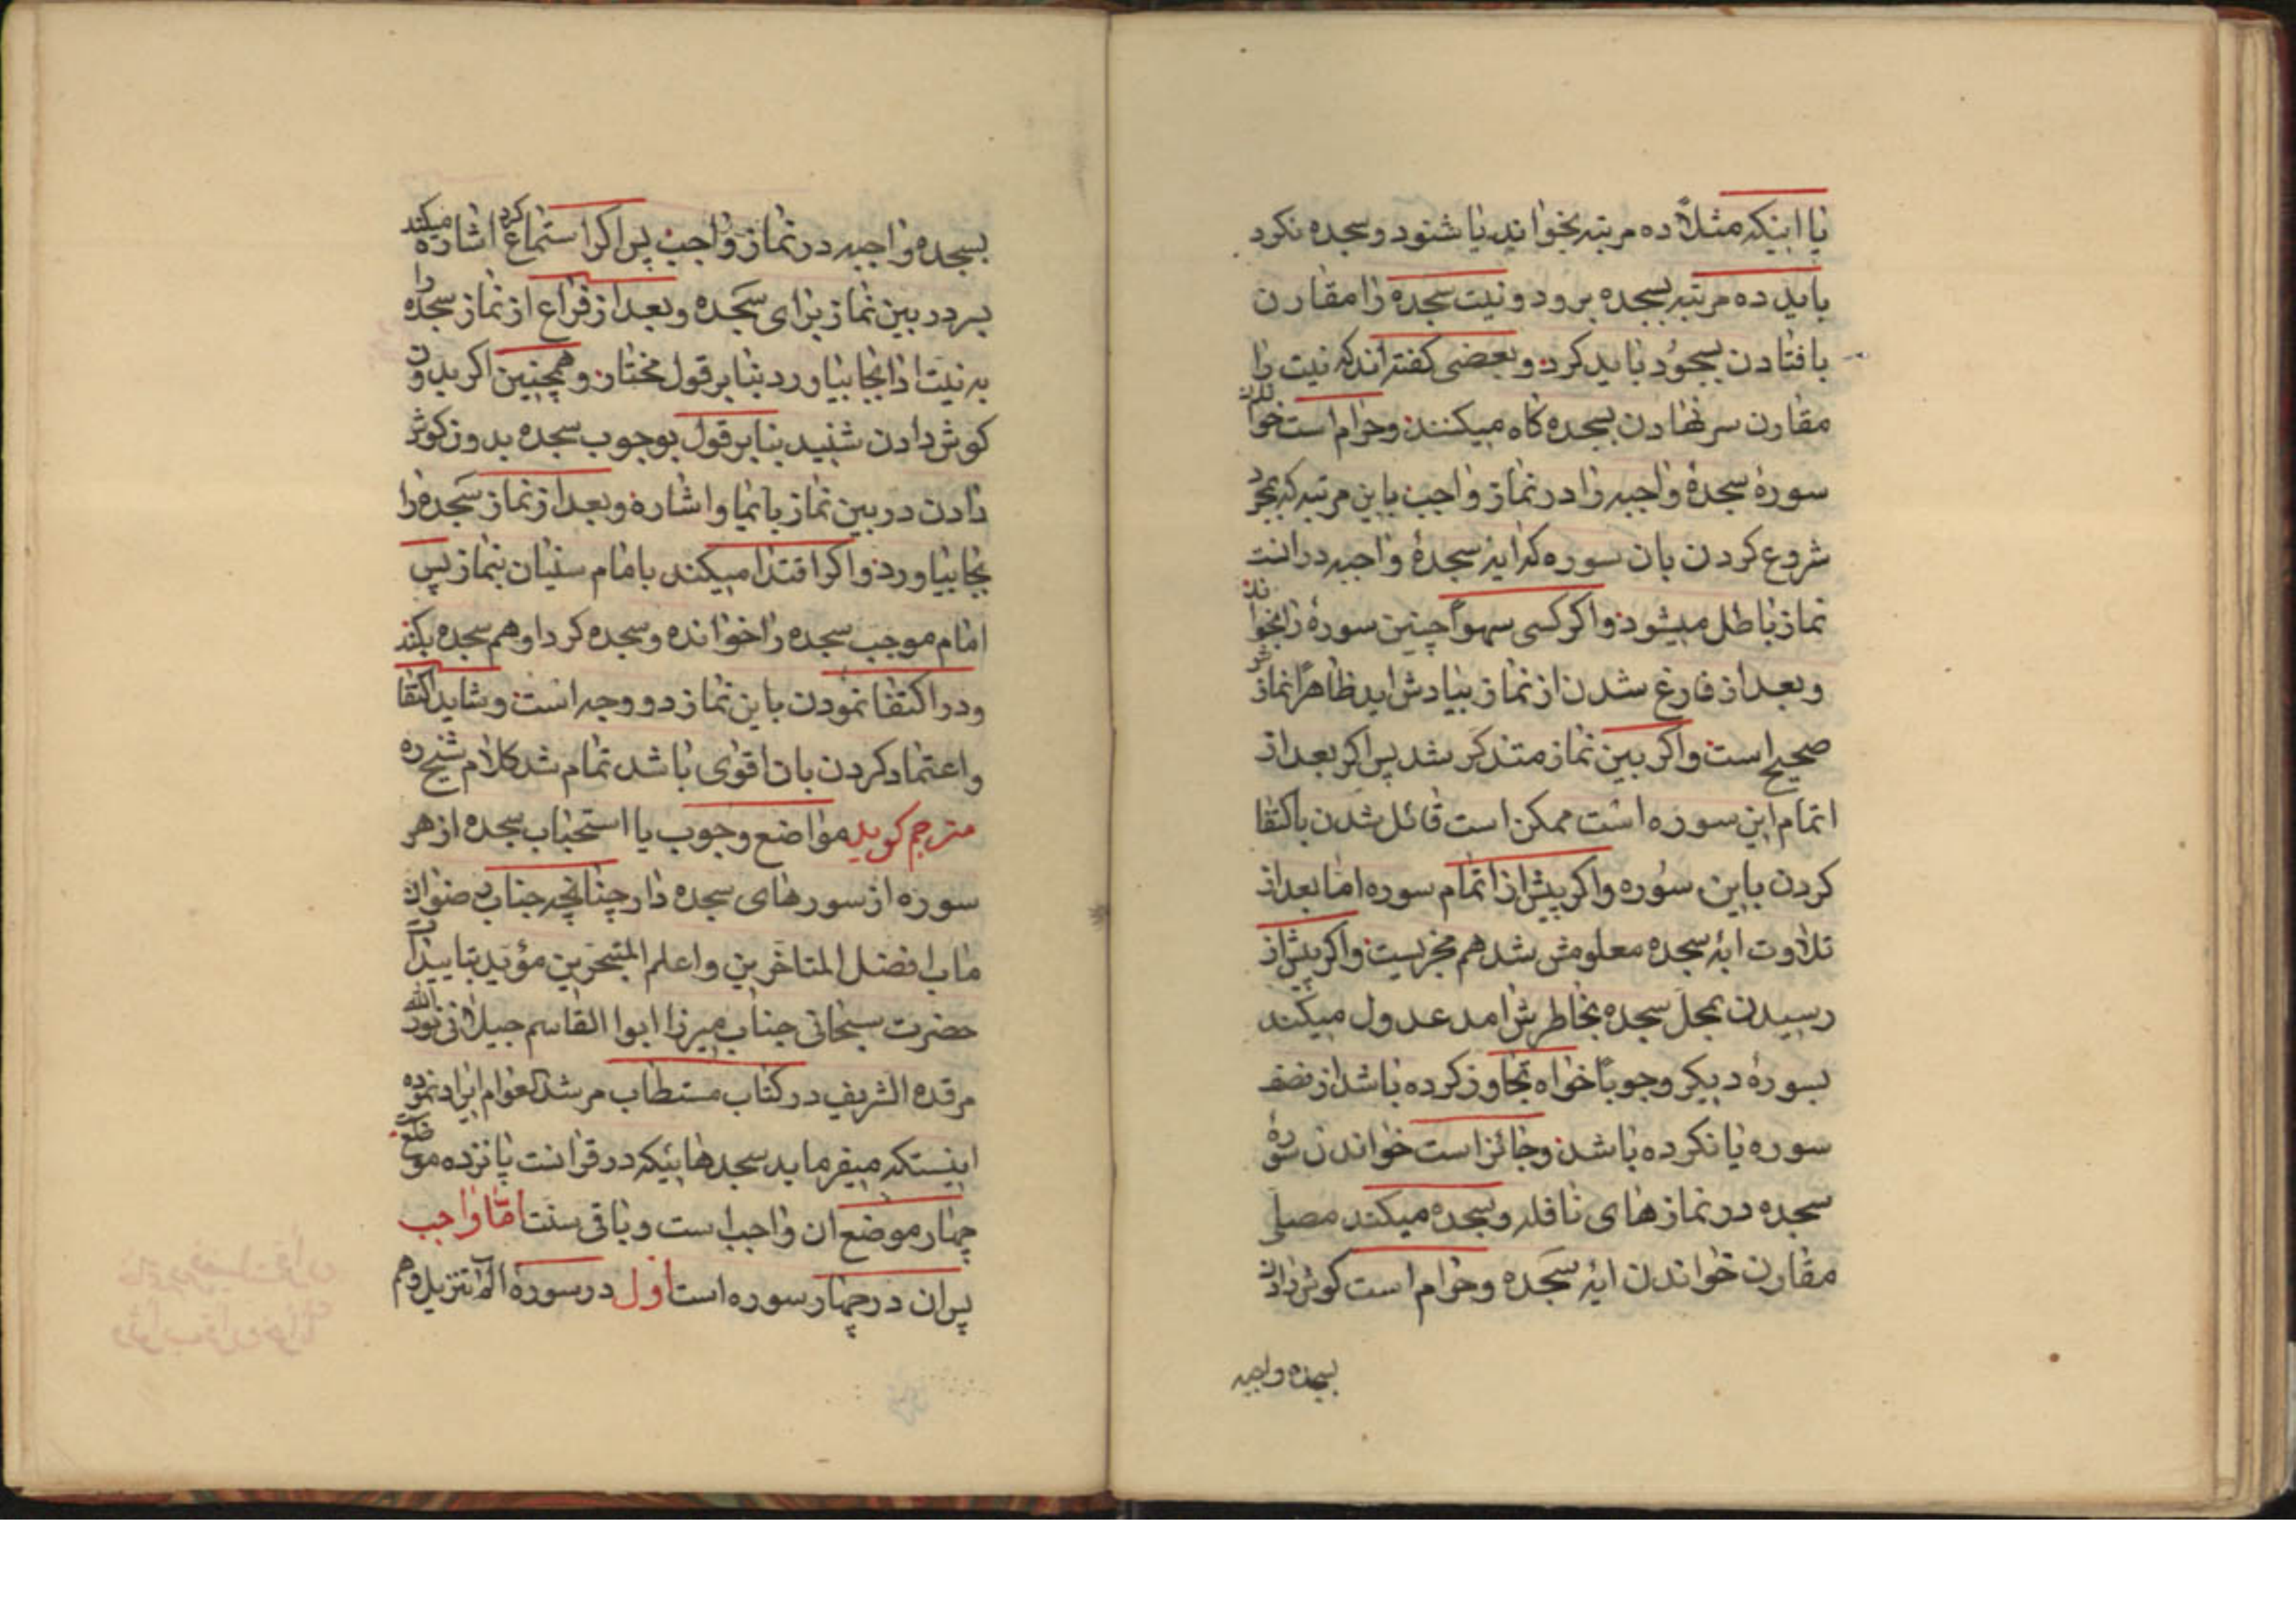 یا اینکه مثلاً ده مرتبه بخواند یا شنود و سجده نکرد
باید ده مرتبه بسجده برود و نیت سجده را مقارن
بافتادن بسجود باید کرد و بعضی گفته‌اند که نیت را
مقارن سر نهادن بسجده گاه میکنند و حرام است خواندن
سورهٔ سجدهٔ واجبه را در نماز واجب باین مرتبه که بمجرد
شروع کردن بان سوره که ایهٔ سجدهٔ واجبه در انست
نماز باطل میشود و اگر کسی سهواً چنین سورهٔ را بخواند
و بعد از فارغ شدن از نماز بیادش اید ظاهراً نمازش
صحیح است و اگر بین نماز متذکر شد پس اگر بعد از
اتمام این سوره است ممکن است قائل شدن باکتفا
کردن باین سوره و اگر پیش از اتمام سوره اما بعد از
تلاوت ایهٔ سجده معلومش شد هم مجزیست و اگر پیش از
رسیدن بمحل سجده بخاطرش امد عدول میکند
بسورهٔ دیگر وجوباً خواه تجاوز کرده باشد از نصف
سوره یا نکرده باشد و جائز است خواندن سورهٔ
سجده در نمازهای نافله و سجده میکند مصلی
مقارن خواندن ایهٔ سجده و حرام است گوش دادن
بسجده واجبه
بسجده واجبه در نماز واجب پس اگر استماع کرد اشاره میکند
بسر در بین نماز برای سجده و بعد از فراغ از نماز سجده را
به نیت ادا بجا بیاورد بنا بر قول مختار و همچنین اگر بدون
گوش دادن شنید بنا بر قول بوجوب سجده بدون گوش
دادن در بین نماز بایما و اشاره و بعد از نماز سجده را
بجا بیاورد و اگر اقتدا میکند بامام سنیان بنماز پس
امام موجب سجده را خوانده و سجده کرد او هم سجده بکند
و در اکتفا نمودن باین نماز دو وجه است و شاید اکتفا
و اعتماد کردن بان اقوی باشد تمام شد کلام شیخ ره
مترجم گوید مواضع وجوب یا استحباب سجده از هر
سوره از سورهای سجده دار چنانچه جناب رضوان
ماب افضل المتاخرین و اعلم المتبحرین مؤید بتاییدات
حضرت سبحانی جناب میرزا ابوا القاسم جیلانی نور الله
مرقده الشریف در کتاب مستطاب مرشد العوام ایراد نموده
اینستکه میفرماید سجدهائیکه در قرانست پانزده موضع است
چهار موضع ان واجب است و باقی سنت امّا واجب
پس ان در چهار سوره است اول در سورهٔ الم تنزیل و هم